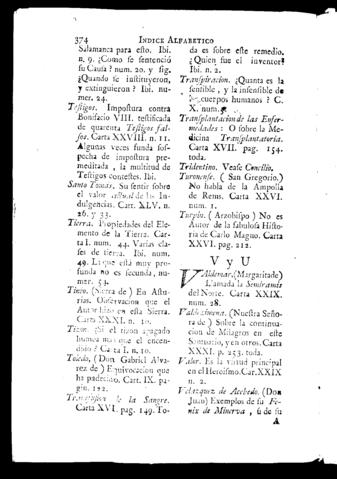 374 INDICE ALFABETICO
Salamanca para esto. Ibi.
n. 9. ¿Como se sentenció
su Causa? num. 20. y sig.
¿Quando se instituyeron,
y extinguieron? Ibi. nu-
mer. 24.
Testigos. Impostura contra
Bonifacio VIII. testificada
de quarenta Testigos fal-
sos. Carta XXVIII. n. 11.
Algunas veces funda sos-
pecha de impostura pre-
meditada, la multitud de
Testigos contestes. Ibi.
Santo Tomás. Su sentir sobre
el valor actual de las In-
dulgencias. Cart. XLV. n.
26. y 33.
Tierra. Propiedades del Ele-
mento de la Tierra. Car-
ta I. num. 44. Varias cla-
ses de tierra. Ibi. num.
49. La que está muy pro-
funda no es fecunda, nu-
mer. 54.
(Sierra de) En Astu-
rias. Observacion que el
Autor hizo en esta Sierra.
Carta XXXI. n. 10.
¿Si el tizon apagado
humea mas que el encen-
dido? Carta I. n. 10.
Toledo, (Don Gabriel Alva-
rez de) Equivocacion que
ha padecido. Cart. IX. pa-
gin. 122.
de la Sangre.
Carta XVI. pag. 149. To-
da es sobre este remedio.
¿Quien fue el inventor?
Ibi. n. 2.
Transpiracion. ¿Quanta es la
sensible, y la insensible de
cuerpos humanos? C.
X. num.
Transplantacion de las Enfer-
medades: O sobre la Me-
dicina Transplantatoria.
Carta XVII. pag. 154.
toda.
Tridentino. Vease Concilio.
Turonense. (San Gregorio.)
No habla de la Ampolla
de Rems. Carta XXVI.
num. 1.
Turpin. (Arzobispo) No es
Autor de la fabulosa Histo-
ria de Carlo Magno. Carta
XXVI. pag. 212.
V y U
Valdemar. (Margaritade)
Llamada la Semiramis
del Norte. Carta XXIX.
num. 28.
(Nuestra Seño-
ra de) Sobre la continua-
cion de Milagros en este
Santuario, y en otros. Carta
XXXI. p. 253. toda.
Valor. Es la virtud principal
en el Heroísmo. Car. XXIX
n. 2.
Velazquez de Acebedo. (Don
Juan) Exemplos de su Fe-
nix de Minerva, ú de su
A